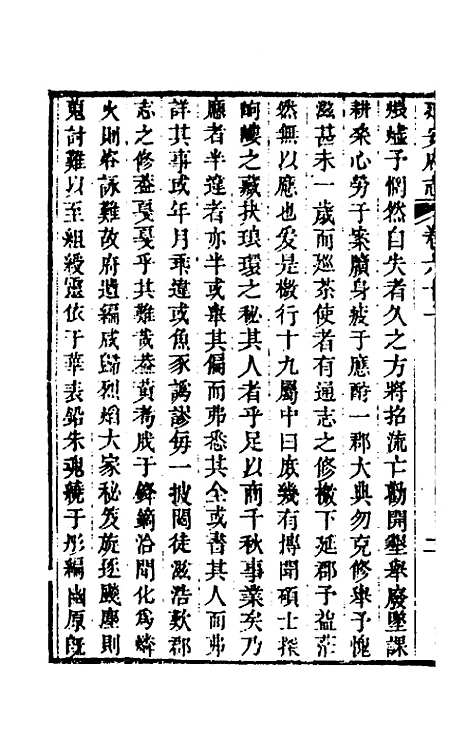 延安府志 卷六十一 二
墟予惘然自失者久之方將招流亡勸開墾舉廢墜課
耕桑心勞于案牘身疲于應酬一郡大典勿克修舉予愧
滋甚未一歲而廵茶使者有通志之修檄下延郡予益茫
然無以應也爰是檄行十九屬中曰庶幾有博聞碩士探
岣嶁之藏抉琅環之秘其人者乎足以商千秋事業矣乃
應者半違者亦半或舉其偏而弗悉其全或書其人而弗
詳其事或年月乖違或魚豕譌謬每一披閱徒滋浩歎郡
志之修葢戛戛乎其難哉葢黃膏成于鋒鏑冶間化爲燐
火則咨詠難故府遺編咸歸烈熖大家秘笈旋逐飈塵則
蒐討難以至組綬靈依于華表鉛朱魂繞于彤編幽原旣